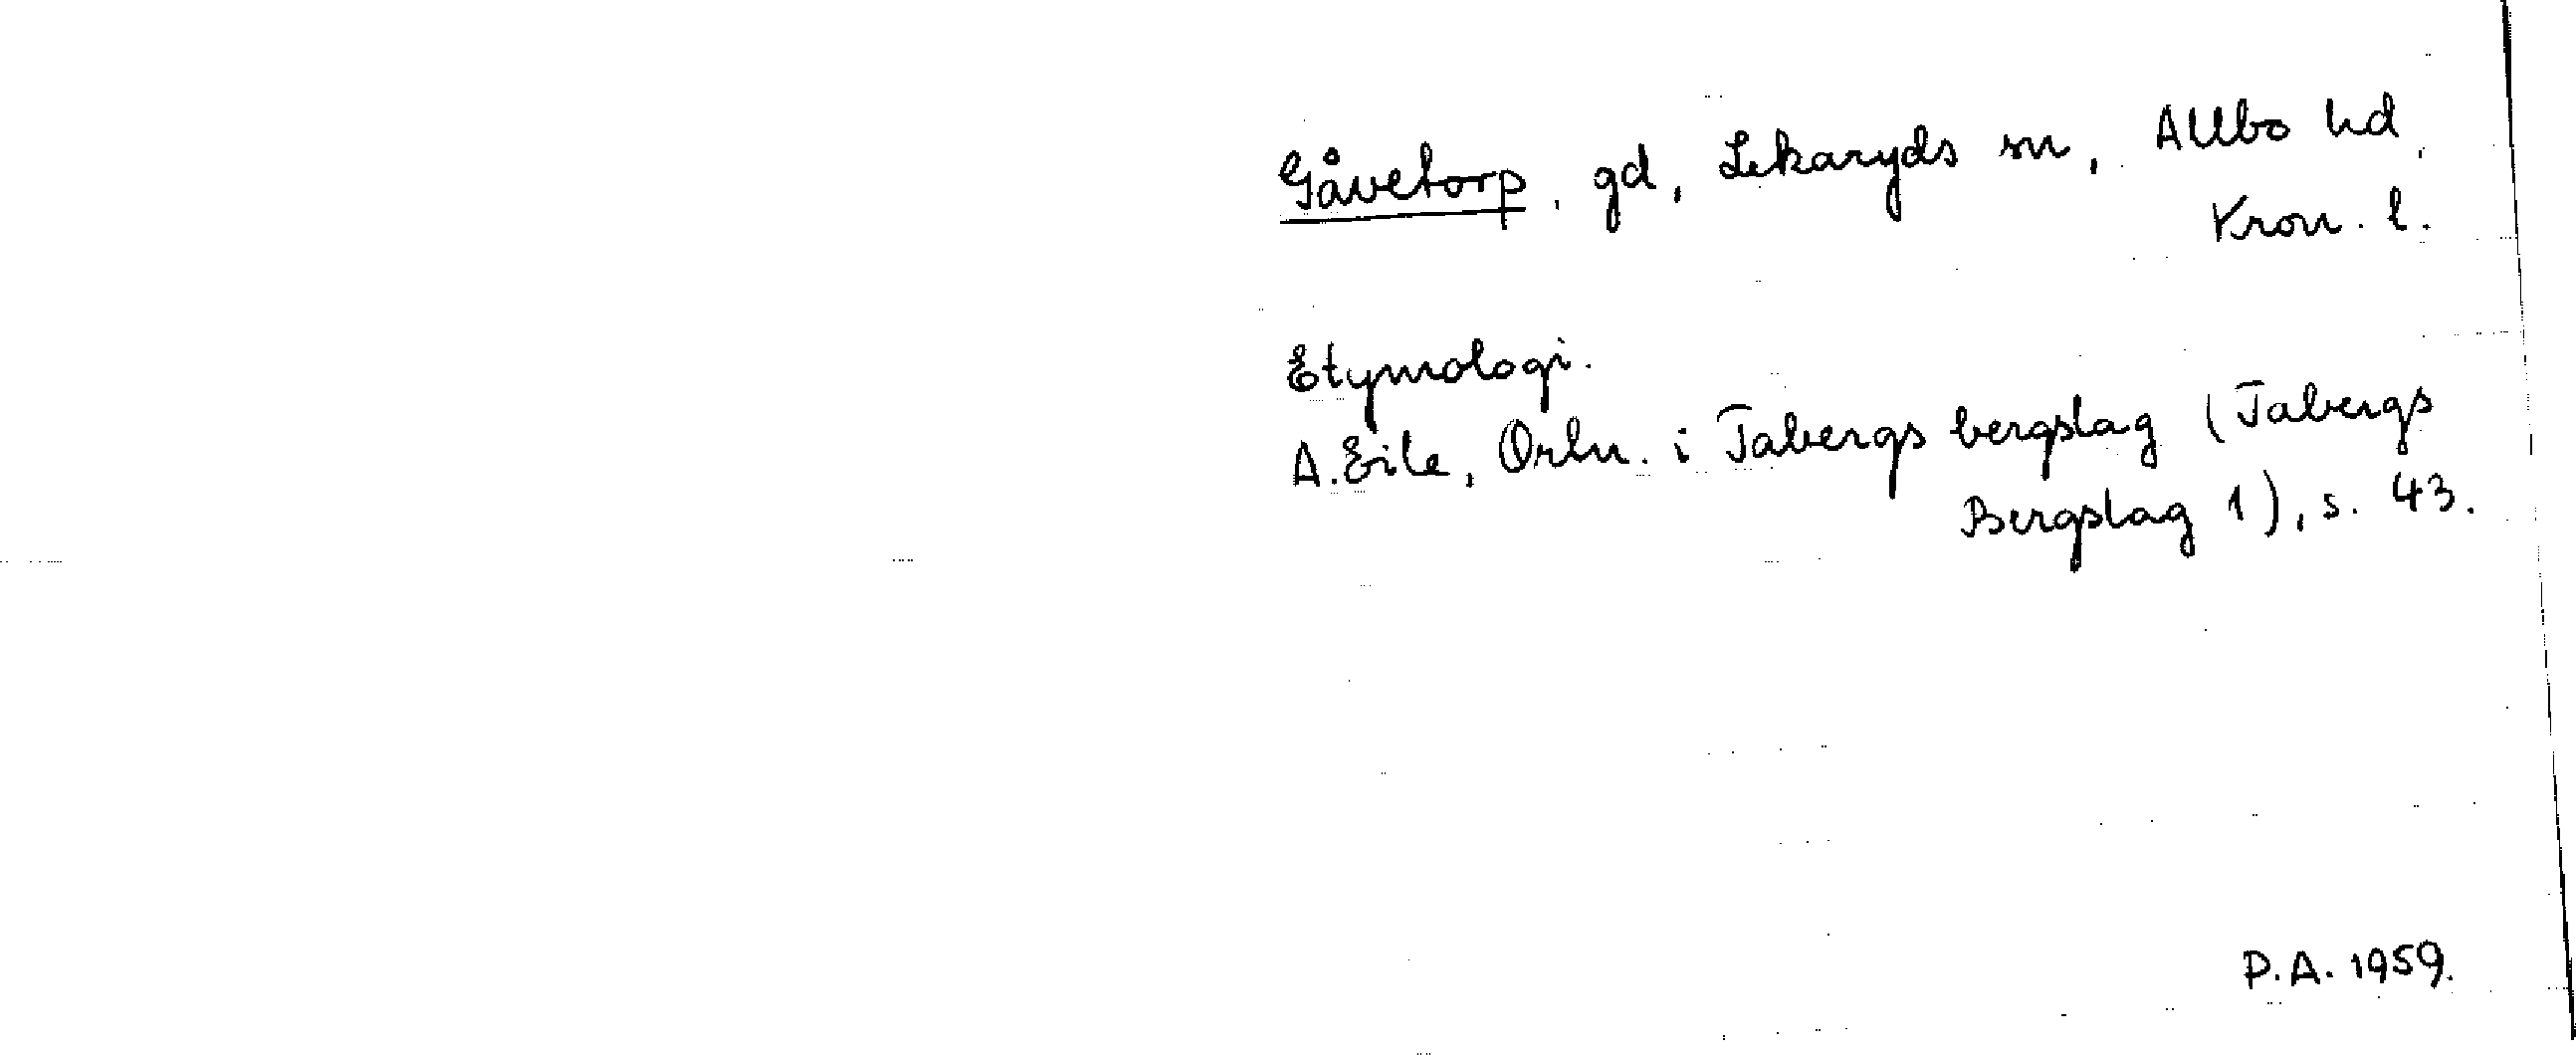 Gåvetorp, gd, Lekaryds sn, Allbo hd,
Kron. l.
Etymologi.
A. Eile, Ortn. i Tabergs bergslag (Tabergs
Bergslag 1), s. 43.
P.A. 1959.